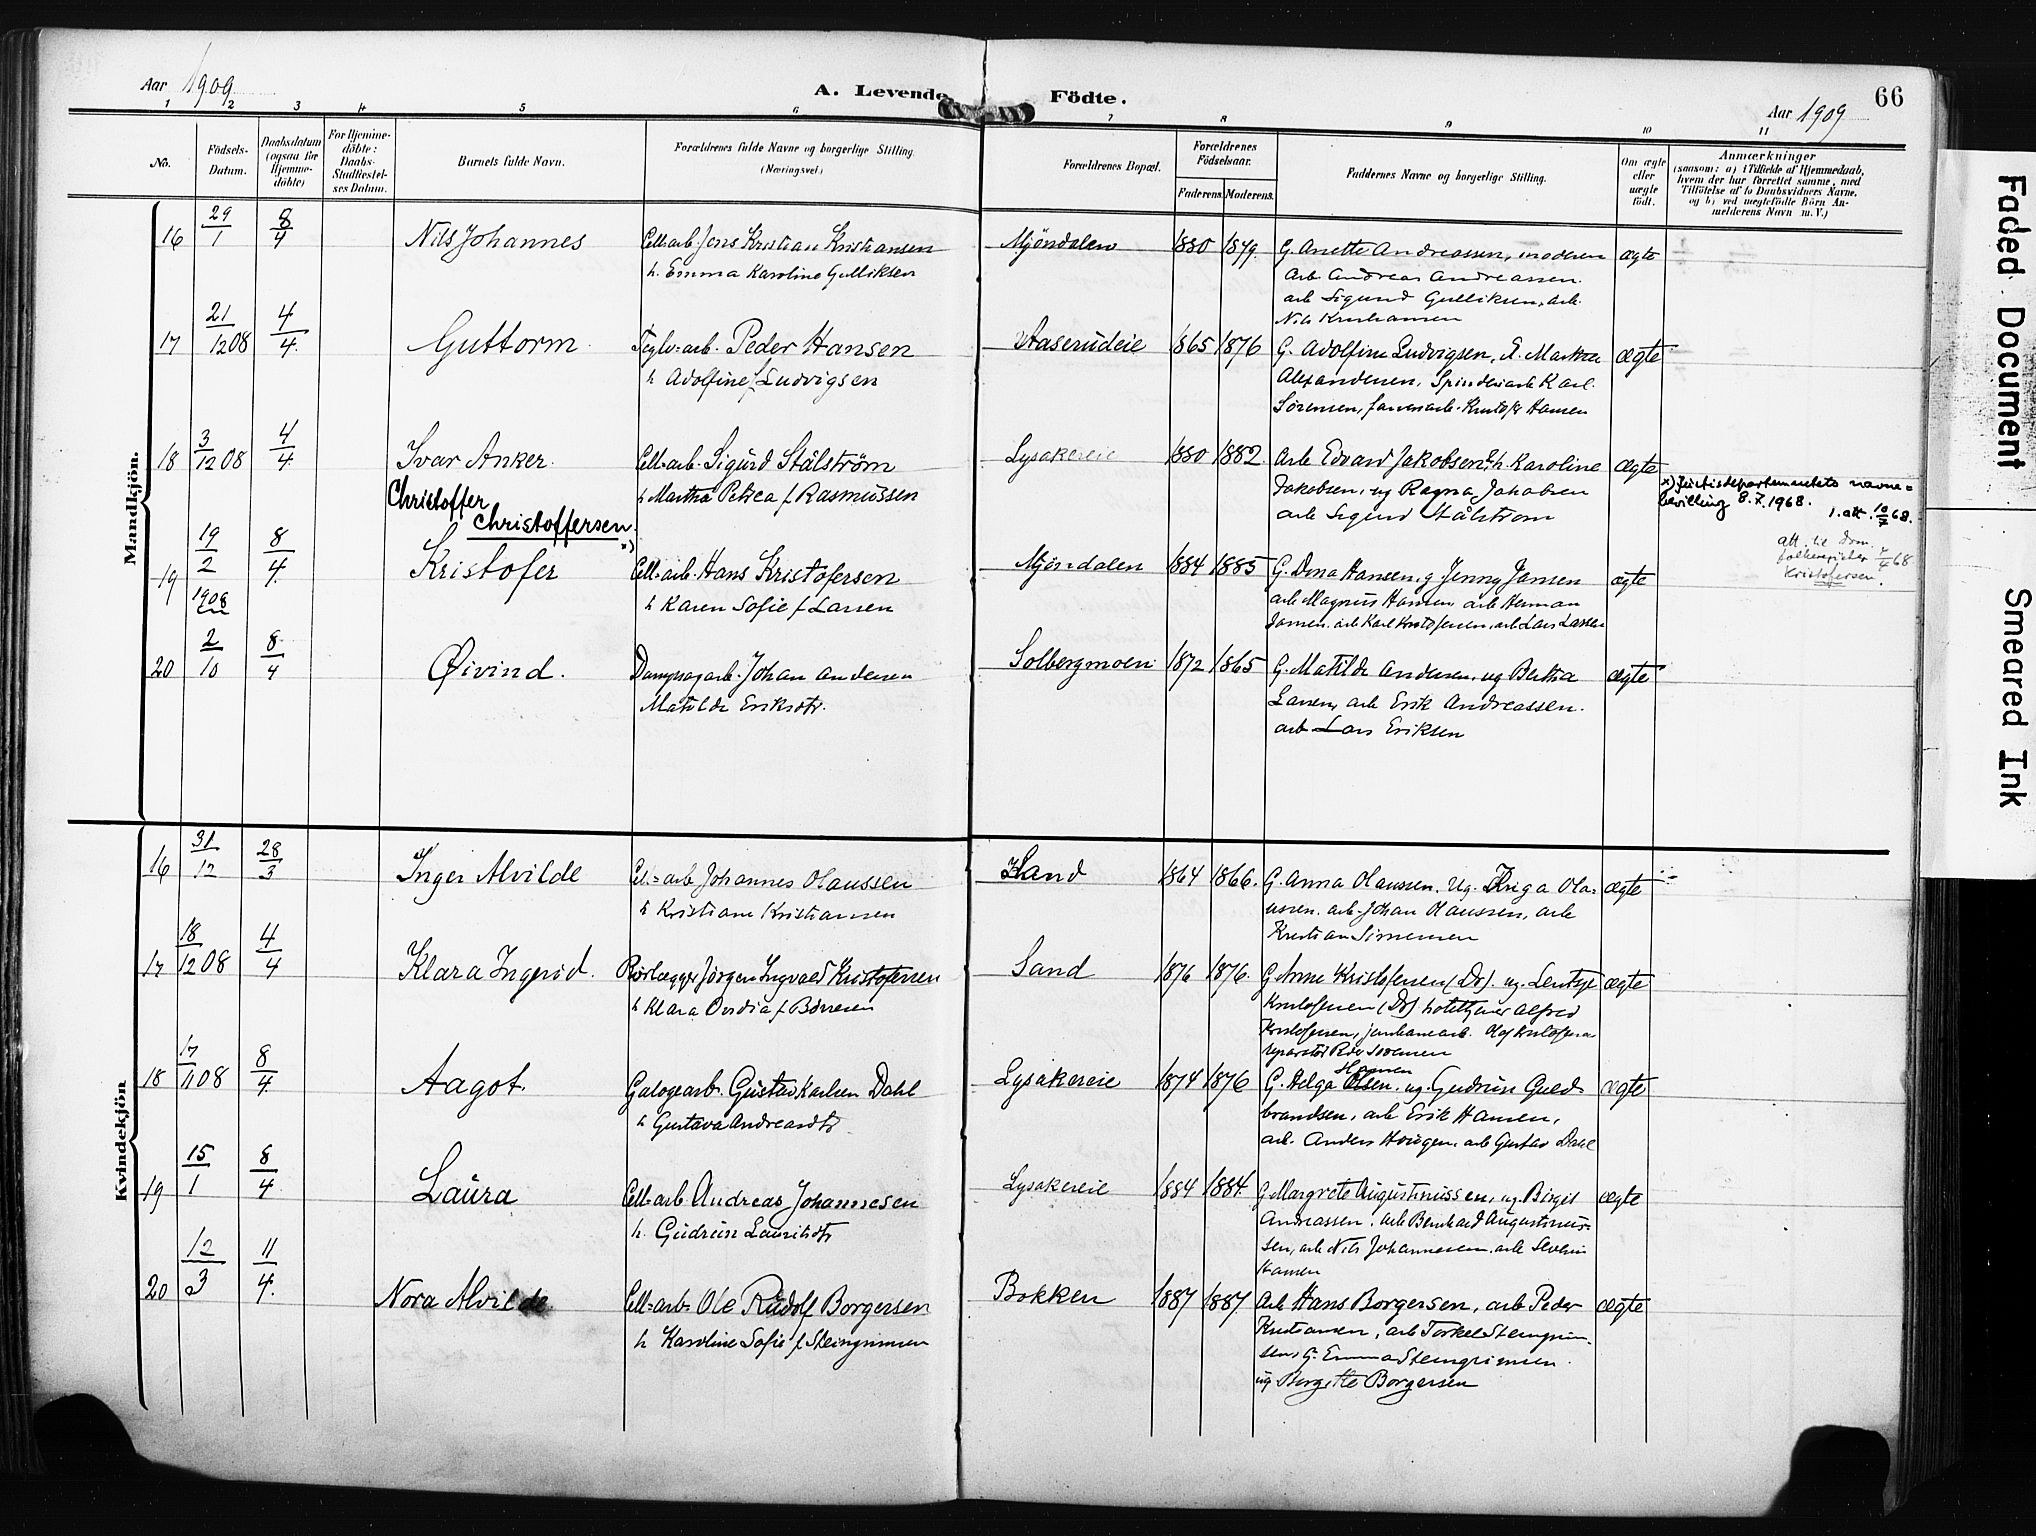 Aar 1909
A. Levende Födte.
Aar 1909
66
1 2 3 4 5 6 7 8 9 10 11
No.
Födsels-
Datum.
Daabsdatum
(ogsaa for
Hjemme-
döbte)
For Hjemme-
döbte:
Daabs-
Stadfæstel-
ses Datum.
Barnets fulde Navn.
Forældrenes fulde Navne og borgerlige Stilling.
(Næringsvei.)
Forældrenes Bopæl.
Forældrenes
Födselsaar.
Faderens. Moderens.
Faddernes Navne og borgerlige Stilling.
Om ægte
eller
uægte
födt.
Anmærkninger
(saasom: a) i Tilfælde af Hjemmedaab,
hvem der har forrettet samme, med
Tilföielse af to Daabsvidners Navne,
og b) ved uægtefödte Börn An-
melderens Navn m. V.)
Mandkjön.
16 29/1 8/4 Nils Johannes Cell-arb. Jens Kristian Kristiansen Mjöndalen 1880 1879. G. Anette Andreassen, moderen ægte
h. Emma Karoline Gulliksen arb Andreas Andreassen.
arb Sigurd Gulliksen, arb.
Nils Kristiansen
17 21/12 08 4/4 Guttorm Teglv-arb. Peder Hansen Aaserudeie 1865 1876 G. Adolfine Ludvigsen, P. Martha ægte
h Adolfine f Ludvigsen Alexandersen, Spinderiarb Karl
Sörensen, farveriarb. Kristofr Hansen
18 3/12 08 4/4 Ivar Anker Cell-arb. Sigurd Stålström Lysakereie 1880 1882 Arb Edvard Jakobsen & h. Karoline ægte
h Martha Petrea f Rasmussen Jakobsen, ug Ragna Jakobsen
arb Sigurd Stålström
Christoffer
Christoffersen x)
x) Justisdepartementets navne-
bevilling 8.7.1968.
1. att. 10/7 68.
19 19/2 1908 8/4 Kristofer Cell-arb. Hans Kristofersen Mjöndalen 1884 1885 G. Dina Hansen, g Jenny Jansen ægte
h Karen Sofie f Larsen arb Magnus Hansen arb Herman
Jansen. arb Karl Kristofersen, arb Lars Larsen
att. til Dom.
folkeregister 7/4 68
Kristofersen.
20 2/10 8/4 Øivind. Dampsagarb. Johan Andersen Solbergmoen 1872 1865 G. Matilde Andersen, ug Bertha ægte
Matilde Eriksdtr. Larsen, arb Erik Andreassen.
arb Lars Eriksen
Kvindekjön
16 31/12 28/3 Inger Alvilde Cel.-arb Johannes Olaussen Sand 1864 1866. G. Anna Olaussen. Ug. Kriga Ola- ægte
h Kristiane Kristiansen ussen. arb. Johan Olaussen, arb
Kristian Simensen
17 18/12 08 4/4 Klara Ingerid. Rörlægger Jörgen Ingvald Kristofersen Sand 1876 1876. G. Anne Kristofersen (Dr). ug. Lentzye ægte
h Klara Ovidia f Börresen Kristofersen (Dr) hoteltjener Alfred
Kristofersen, jernbanearb. Olaf Kristofersen
reparatör Rder Sörensen
18 17/11 08 8/4 Aagot. Galogearb. Gustav Karlsen Dahl Lysakereie 1874 1876 G. Helga Olsen Hansen. ug. Gudrun Guld- ægte
h Gustava Andreasdtr brandsen, arb Erik Hansen,
arb. Anders Haugen. arb Gustav Dahl
19 15/1 8/4 Laura Cell-arb Andreas Johannesen Lysakereie 1884 1884. G Margrete Augustinussen, ug. Birgit ægte
h. Gudrun Lauritsdtr Andreassen. arb Bernhard Augustinus-
sen, arb Nils Johannesen. arb Severin
Hansen
20 12/3 11/4. Nora Alvilde Cell-arb Ole Rudolf Borgersen Bokken 1887 1887 Arb Hans Borgersen, arb Peder ægte
h Karoline Sofie f Steingrimsen Kristiansen, arb Torkel Steingrim-
sen, G. Emma Steingrimsen.
ug Borgitte Borgersen
Faded Document
Smeared Ink